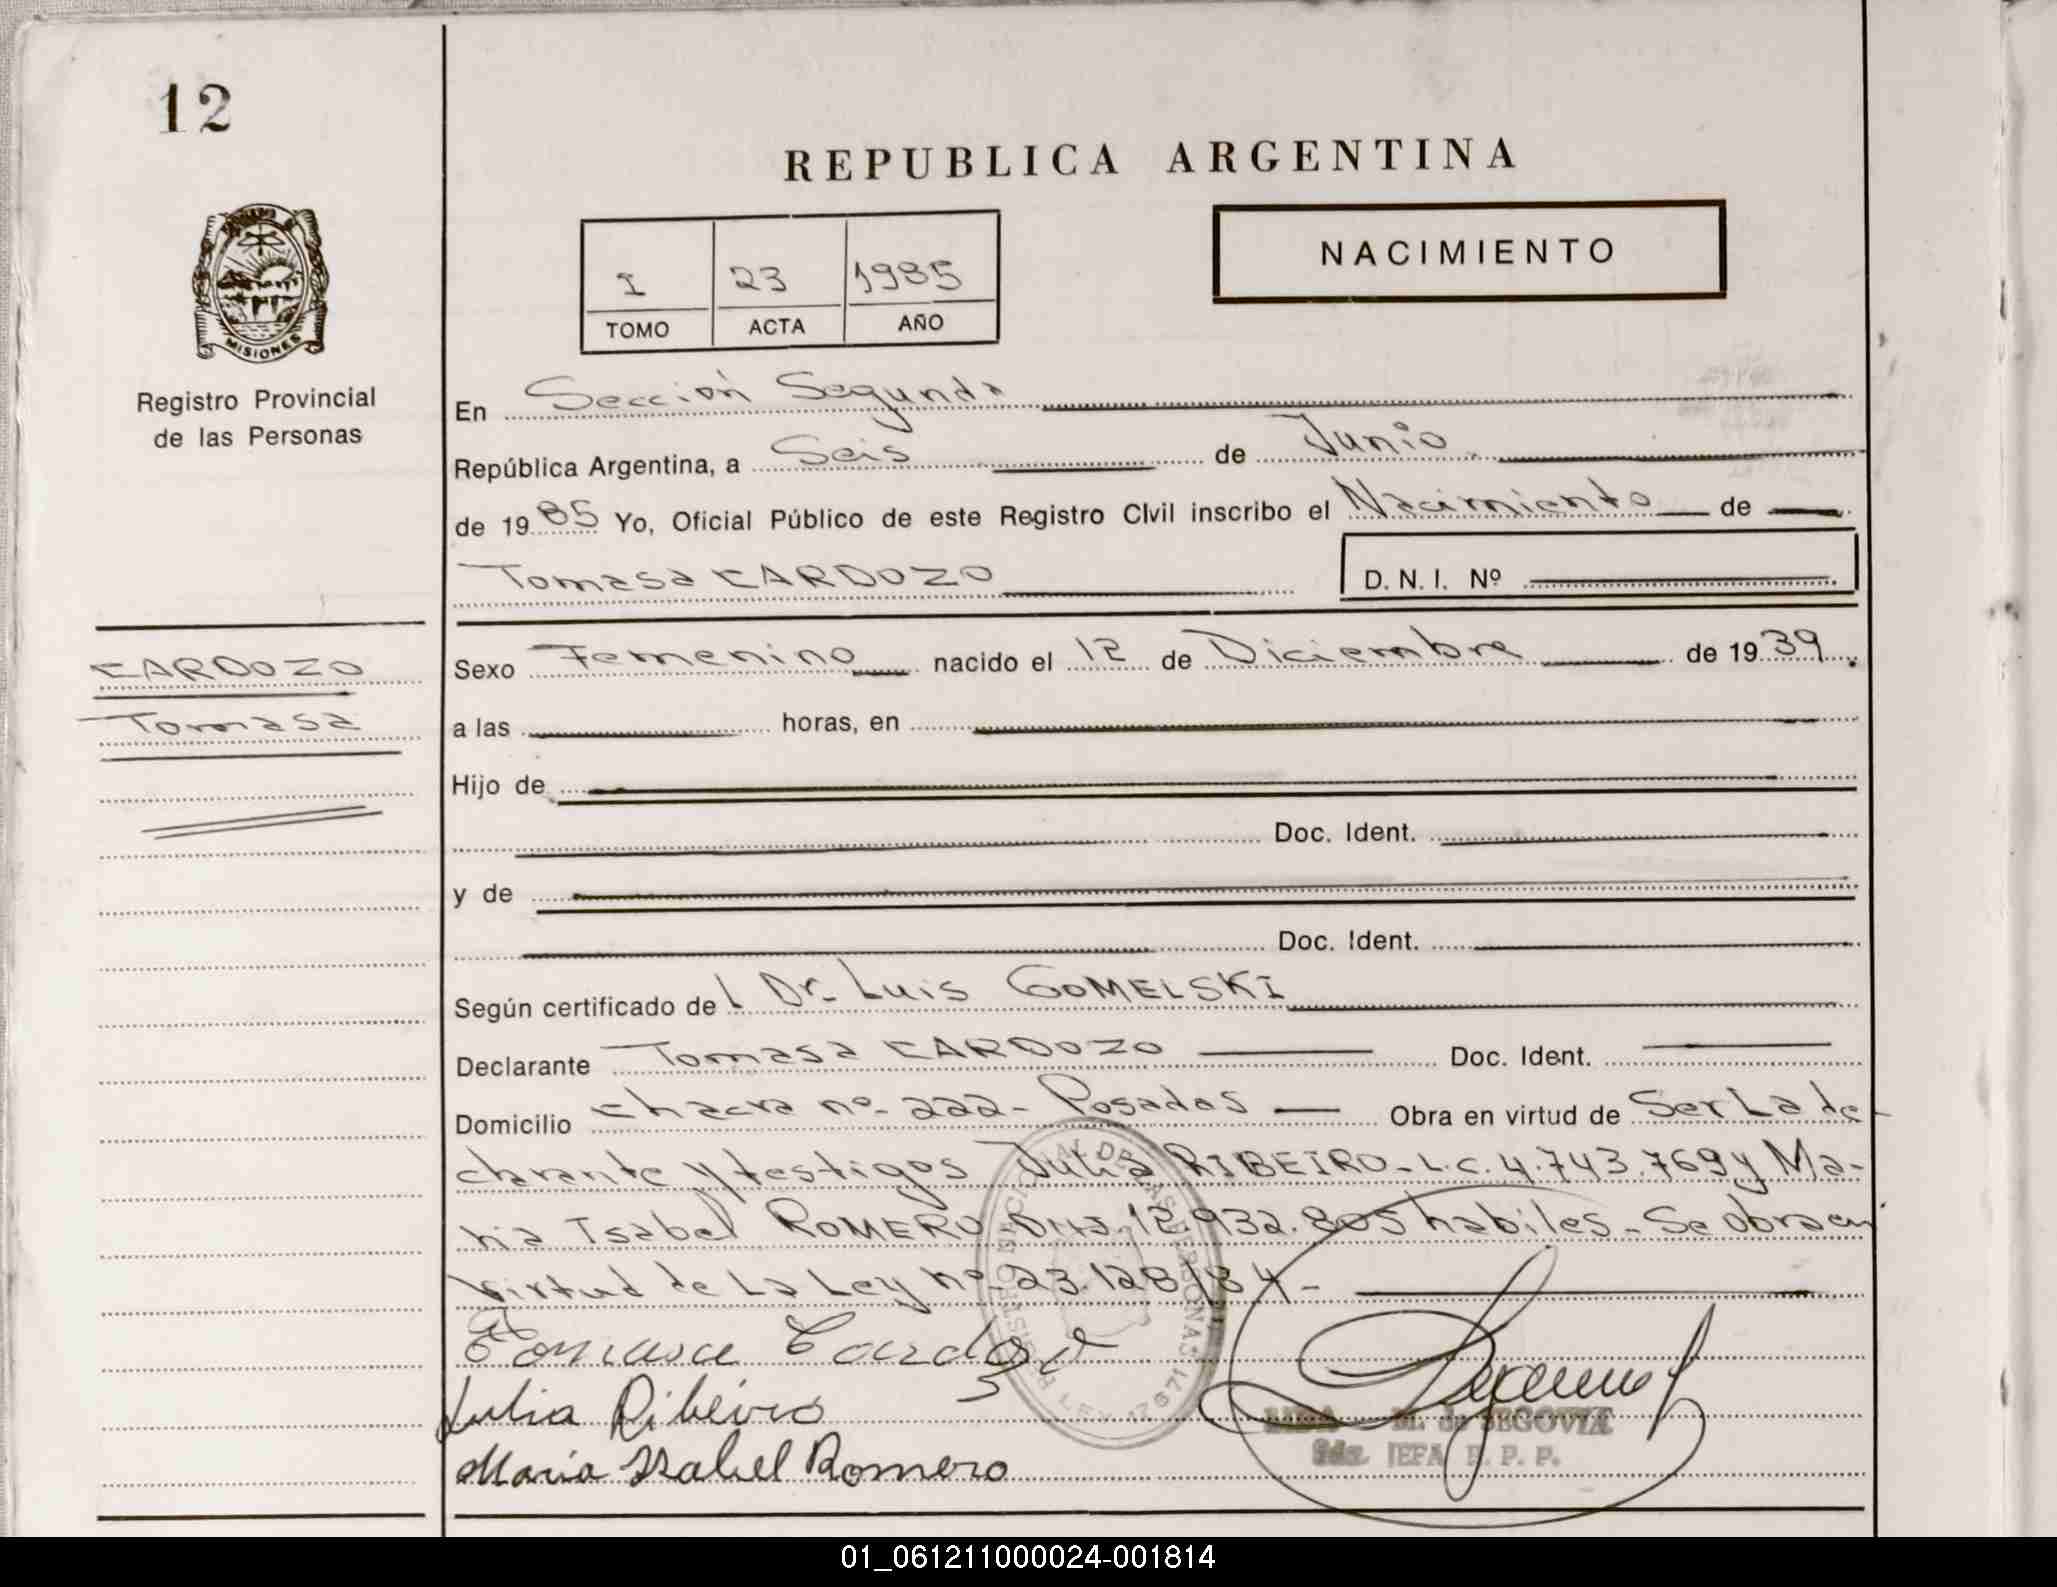 12
REPUBLICA ARGENTINA
NACIMIENTO
I 23 1985
TOMO ACTA AÑO
MISIONES
Registro Provincial
de las Personas
En Sección Segunda
República Argentina, a Seis de Junio
de 1985 Yo, Oficial Público de este Registro Civil inscribo el Nacimiento de
Tomasa CARDOZO D. N. I. Nº
CARDOZO
Tomasa
Sexo Femenino nacido el 12 de Diciembre de 1939.
a las horas, en
Hijo de
Doc. Ident.
y de
Doc. Ident.
Según certificado del Dr. Luis GOMELSKI
Declarante Tomasa CARDOZO Doc. Ident.
Domicilio Chacra nº 222 - Posadas Obra en virtud de Ser La de-
clarante y testigos Julia RIBEIRO - L.C. 4.743.769 y Ma-
ria Isabel ROMERO 12.932.805 habiles - Se obra en
virtud de La Ley nº 23.128/84 -
Tomasa Cardozo
Julia Ribeiro
María Isabel Romero
LIDIA de SEGOVIA
JEFA R. P. P.
01_061211000024-001814